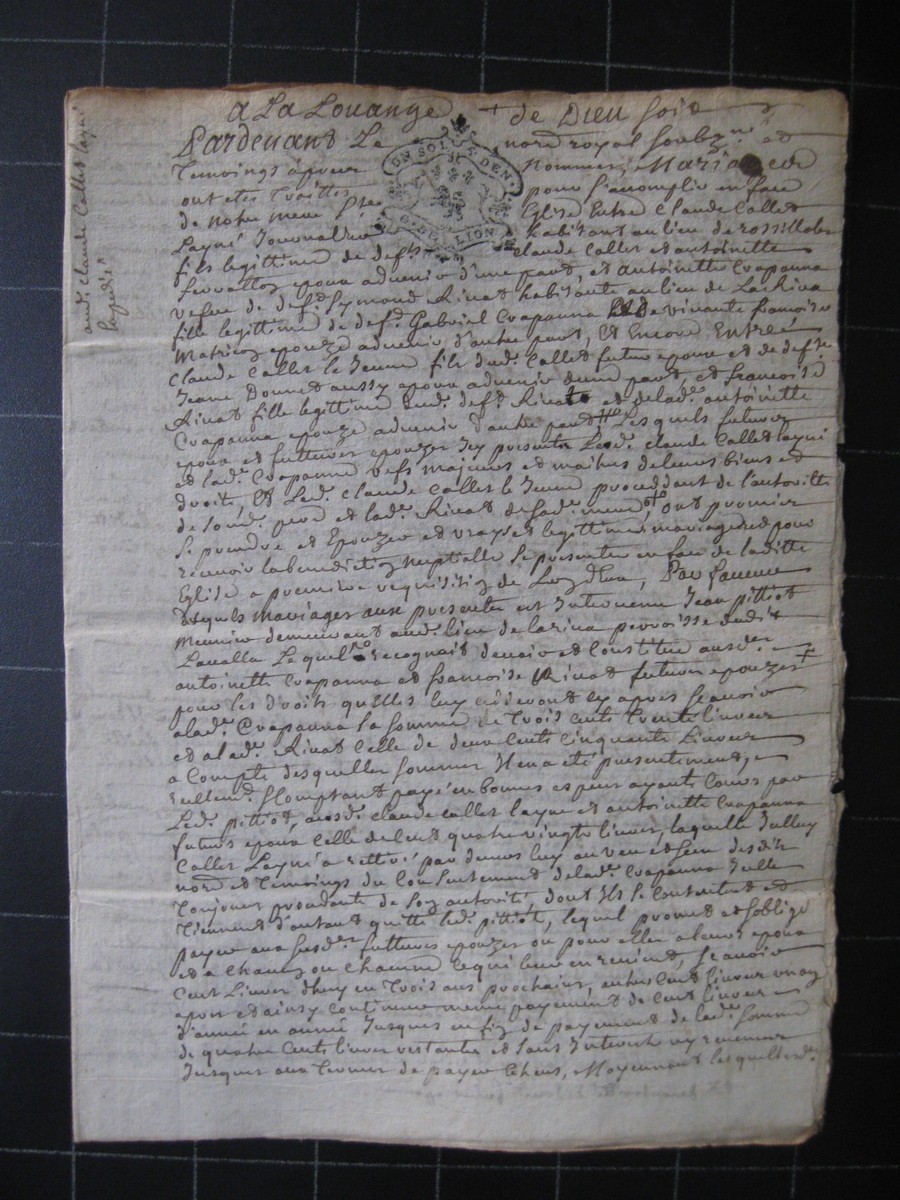 a La Louange + de Dieu soit
Pardevant Le nord royal soubz.né et
Temoings apres Nommes, Mariage
ont etes Traittes pour s'acomplir en face
de notre mere Ste Eglise Entre Claude Callet
Layné Journallier habitant au lieu de rossillol
fils legittime de defts Claude Callet et antoinette
epoux advenir d'une part, et antoinette Crapanna
vefve de deft. Symond Rivat habitante au lieu de La Riva
fille legittime de deft. Gabriel Crapanna et de vivante francoise
Matricz epouze advenir d'autre part, Et Encore Entre
Claude Callet le Jeune fils dud. Callet futur epoux et de defte
Jeane Donnet aussy epoux advenir d'une part, et francoise
Rivat fille legittime dud. deft. Rivat et de lade. antoinette
Crapanna epouze advenir d'autre part Lesquels futurs
epoux et futtures epouzes Icy presents Led. Claude Callet layné
et lade. Crapanna vefs majeurs et maitres de leurs biens et
droits, Et Led. Claude Callet le Jeune proceddant de l'autoritte
de sond. pere et lade. Rivat de sade. mere ont promis
se prendre et Epouzer en vrays et legittimes mariages et pour
recevoir la benediction nuptialle se presenter en face de laditte
Eglise a premiere requisition de Luy d'eux, En faveur
desquels mariages aux presentes est Intervenu Jean pittiot
Meunier demeurant aud. lieu de la riva parroisse dudit
Lavalla Lequel recognait devoir et Constitue ausde.
antoinette Crapanna et francoise Rivat futures epouzes
pour les droits quelles luy cederont cy apres scavoir
a lade. Crapanna la somme de Trois cents Trente livres
et a lade. Rivat celle de deux Cents Cinquante Livres
a Compte desquelles sommes Il en a eté presentement,
reellemt. et Comptant payé en bonnes especes ayants Cours par
Led. pittiot, ausd. Claude Callet layné et antoinette Crapanna
futurs epoux Celle de Cent quatre vingts livres, laquelle Icelluy
Callet Layné a rettiré par devers luy au veu et sceu desdits
nord et Temoings du Consentement de lade. Crapanna Icelle
Toujours procedante de son autorité, dont Ils se Contentent et
Tiennent d'autant quitte led. pittiot, lequel promet et s'oblige
payer aux susde. futtures epouzes ou pour elles a leurs epoux
et a Chacun ou Chacune ce qui leur en revient, Scavoir
Cent Livres d'huy en Trois ans prochains, autres Cent livres un an
apres et ainsy Continuer meme payement de Cent livres
d'année en année Jusques en fin de payement de lade. somme
de quatre Cents livres restantes et sans Interest ny revenus
Jusques aux Termes de payer Echeus, Moyennant lesquelles de
aud. Claude Callet layné
expedié
UN SOL 4 DEN
G. DE LION